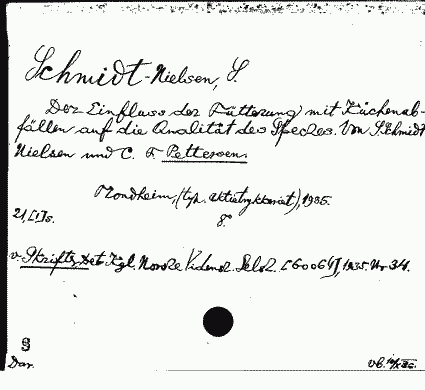 Schmidt-Nielsen, S.
Der Einfluss der Fütterung mit Küchenab-
fällen auf die Qualität des Speckes. Von S. Schmidt
Nielsen und C. F. Pettersen.
Trondheim, (typ. aktietrykkeriet), 1935.
21, [1] s. 8°.
v. Skrifter, Det Kgl. Norske Vidensk. Selsk. [60064], 1935. Nr 34.
§
Dar.